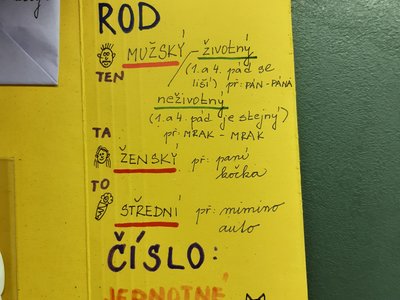 ROD
MUŽSKÝ životný
(1. a 4. pád se
TEN liší) př: PÁN - PÁNA
neživotný
(1. a 4. pád je stejný)
TA př: MRAK - MRAK
ŽENSKÝ př: paní
kočka
TO
STŘEDNÍ př: mimino
auto
ČÍSLO:
JEDNOTNÉ